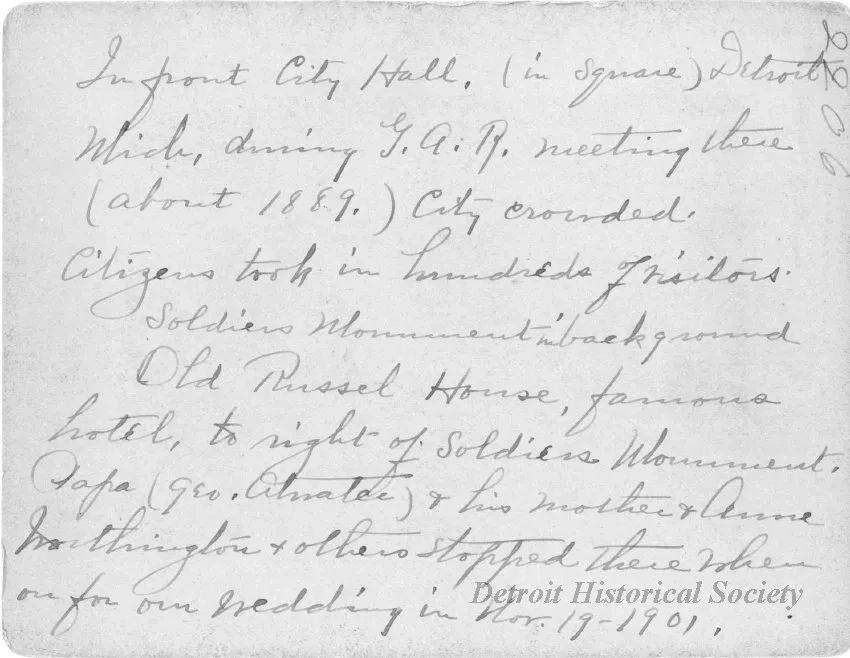 In front City Hall, (in Square) Detroit
Mich, during G. A. R. meeting there
(about 1889.) City crowded.
Citizens took in hundreds of visitors.
Soldiers Monument in background
Old Russel House, famous
hotel, to right of Soldiers Monument.
Papa (Geo. Atwater) & his mother & Anne
Worthington & others stopped there when
on for our wedding in Nov. 19-1901.
2206
Detroit Historical Society